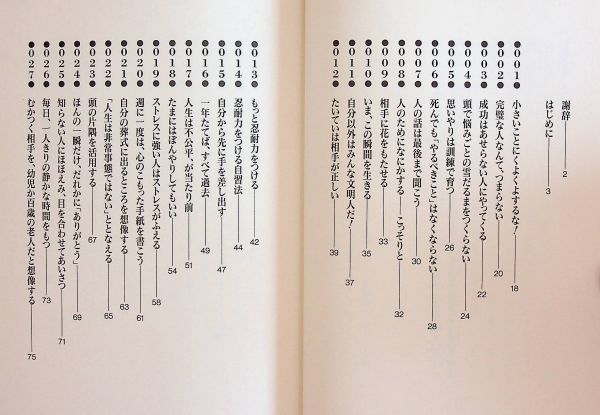 謝辞 2
はじめに 3
●001● 小さいことにくよくよするな! 18
●002● 完璧な人なんて、つまらない 20
●003● 成功はあせらない人にやってくる 22
●004● 頭で悩みごとの雪だるまをつくらない 24
●005● 思いやりは訓練で育つ 26
●006● 死んでも「やるべきこと」はなくならない 28
●007● 人の話は最後まで聞こう 30
●008● 人のためになにかする——こっそりと 32
●009● 相手に花をもたせる 33
●010● いま、この瞬間を生きる 35
●011● 自分以外はみんな文明人だ! 37
●012● たいていは相手が正しい 39
●013● もっと忍耐力をつける 42
●014● 忍耐力をつける自習法 44
●015● 自分から先に手を差し出す 47
●016● 一年たてば、すべて過去 49
●017● 人生は不公平、が当たり前 51
●018● たまにはぼんやりしてもいい 54
●019● ストレスに強い人はストレスがふえる 58
●020● 週に一度は、心のこもった手紙を書こう 61
●021● 自分の葬式に出るところを想像する 63
●022● 「人生は非常事態ではない」ととなえる 65
●023● 頭の片隅を活用する 67
●024● ほんの一瞬だけ、だれかに「ありがとう」 69
●025● 知らない人にほほえみ、目を合わせてあいさつ 71
●026● 毎日、一人きりの静かな時間をもつ 73
●027● むかつく相手を、幼児か百歳の老人だと想像する 75